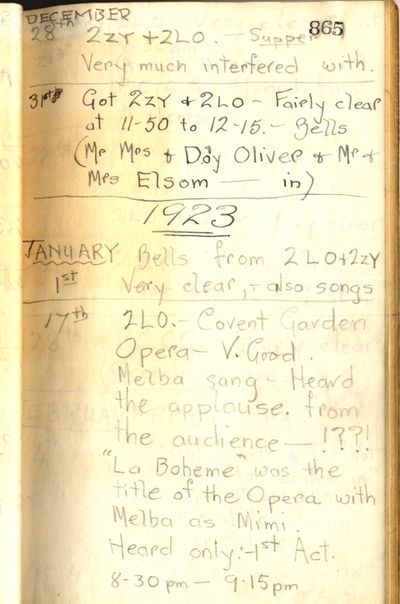 DECEMBER
865
28th 2ZY + 2LO. - Supper
Very much interfered with.
31st Got 2ZY & 2LO - Fairly clear
at 11-50 to 12-15. - Bells
(Mr Mrs & Day Oliver & Mr &
Mrs Elsom — in)
1923
JANUARY Bells from 2LO+2ZY
1st Very clear, - also songs
17th 2LO. - Covent Garden
Opera - V. Good.
Melba sang - Heard
the applause. from
the audience — !??!
"La Boheme" was the
title of the Opera with
Melba as Mimi.
Heard only:- 1st Act.
8-30 pm - 9.15pm